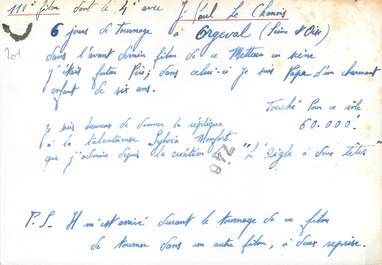 111e film dont le 4e avec J. Paul Le Chanois
201
6 jours de tournage à Orgeval (Seine et Oise)
dans l'avant dernier film de ce Metteur en scène
j'étais futur Père, dans celui-ci je suis Papa d'un charmant
enfant de six ans.
Touché Pour ce rôle
60.000f
je suis heureux de donner la réplique
à la talentueuse Sylvia Monfort
que j'admire depuis la création de "L'Aigle à deux têtes"
248
P.S. Il m'est arrivé durant le tournage de ce film
de tourner dans un autre film, à deux reprises.